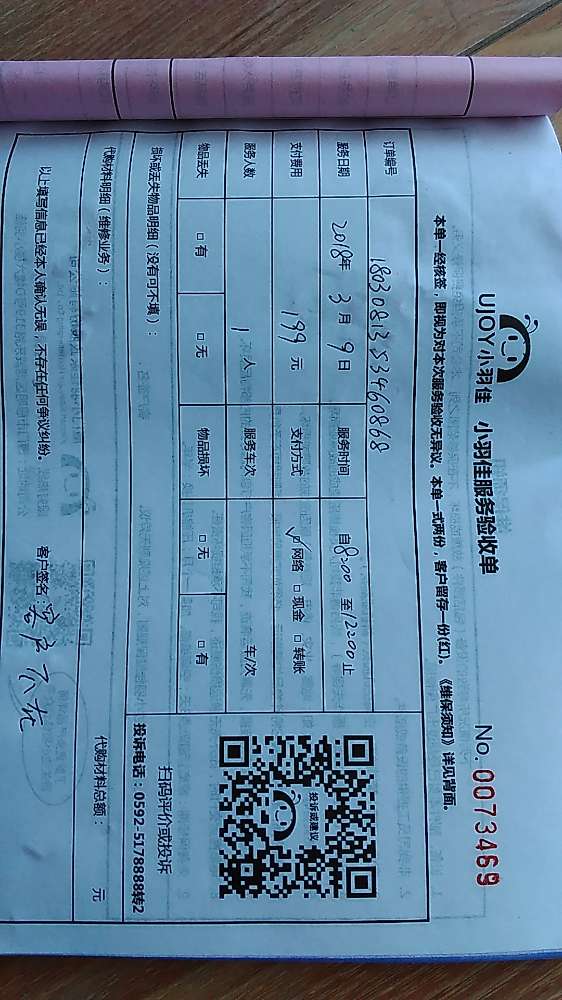 UJOY小羽佳 小羽佳服务验收单
No. 0073469
本单一经核签，即视为对本次服务验收无异议。本单一式两份，客户留存一份(红)。《维保须知》详见背面。
订单编号 18030813553460868
服务日期 2018年 3月 9日 服务时间 自8:00 至12:00止
支付费用 199元 支付方式 ☑网络 □现金 □转账
服务人数 1人 服务车次 车/次
物品丢失 □有 □无 物品损坏 □无 □有
损坏或丢失物品明细（没有可不填）：
投诉或建议
扫码评价或投诉
投诉电话：0592-5178888转2
代购材料明细（维修业务）：
代购材料总额： 元
以上填写信息已经本人确认无误，不存在任何争议纠纷。 客户签名：